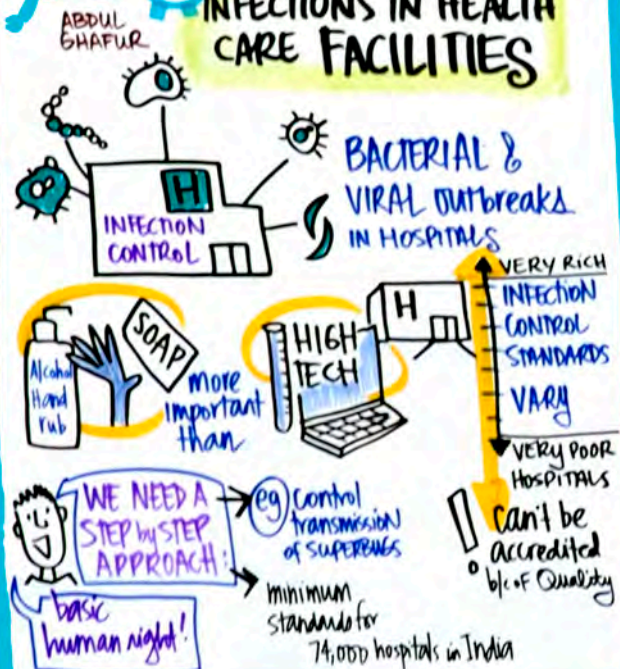 ABDUL
GHAFUR
INFECTIONS IN HEALTH
CARE FACILITIES
H
INFECTION
CONTROL
BACTERIAL &
VIRAL outbreaks
IN HOSPITALS
Alcohol
Hand
rub
SOAP
more
important
than
HIGH
TECH
H
VERY RICH
INFECTION
CONTROL
STANDARDS
VARY
VERY POOR
HOSPITALS
! can't be
accredited
b/c of Quality
WE NEED A
STEP by STEP
APPROACH:
basic
human right!
eg control
transmission
of SUPERBUGS
minimum
standards for
74,000 hospitals in India